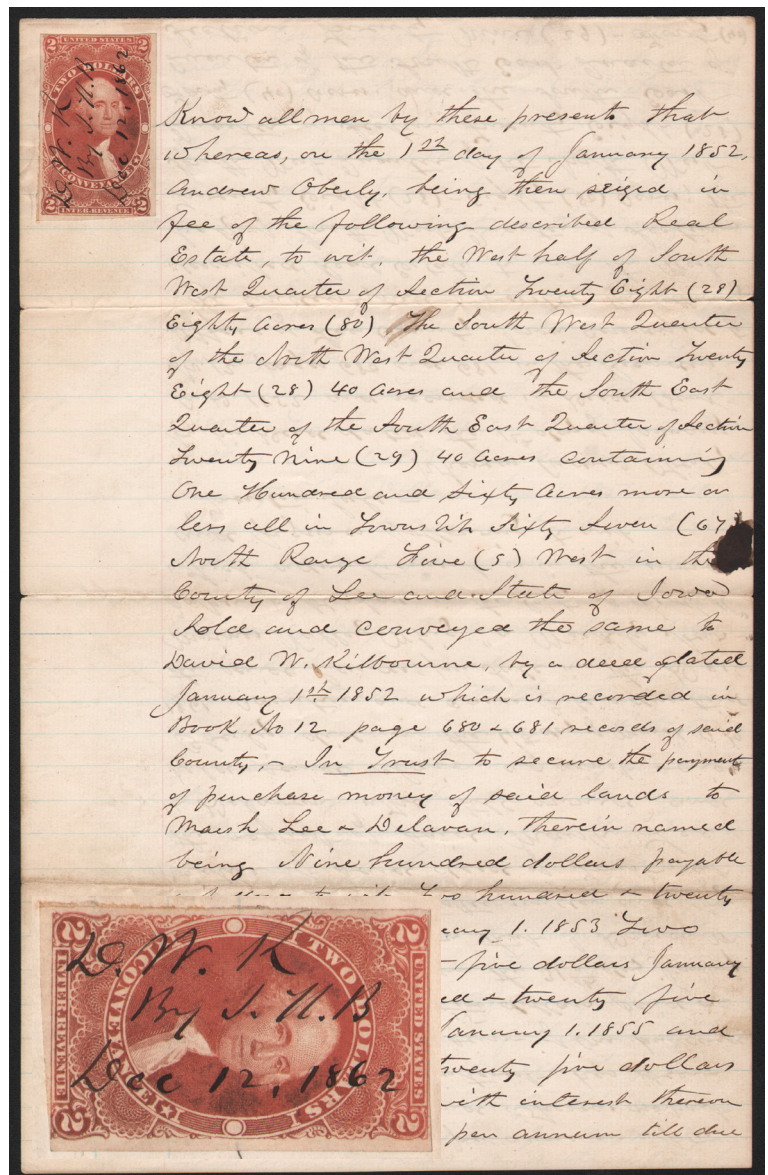 2 UNITED STATES 2
TWO DOLLARS
CONVEYANCE
2 INTER. REVENUE 2
D. W. K
By J. H. B
Dec 12, 1862
Know all men by these presents that
whereas, on the 1st day of January 1852,
Andrew Oberly, being then seized in
fee of the following described Real
Estate, to wit, the West half of South
West Quarter of Section Twenty Eight (28)
Eighty Acres (80) The South West Quarter
of the North West Quarter of Section Twenty
Eight (28) 40 Acres and the South East
Quarter of the South East Quarter of Section
Twenty Nine (29) 40 Acres containing
One Hundred and Sixty Acres more or
less all in Township Sixty Seven (67)
North Range Five (5) West in the
County of Lee and State of Iowa
Sold and conveyed the same to
David W. Kilbourne, by a deed dated
January 1st 1852 which is recorded in
Book No 12 page 680 & 681 records of said
County, - In Trust to secure the payment
of purchase money of said lands to
Marsh Lee & Delavan, therein named
being Nine hundred dollars payable
Two hundred & twenty
1. 1853 Two
five dollars January
& twenty five
January 1. 1855 and
twenty five dollars
with interest thereon
per annum till due
2 UNITED STATES 2
TWO DOLLARS
CONVEYANCE
2 INTER. REVENUE 2
D. W. K
By J. H. B
Dec 12, 1862